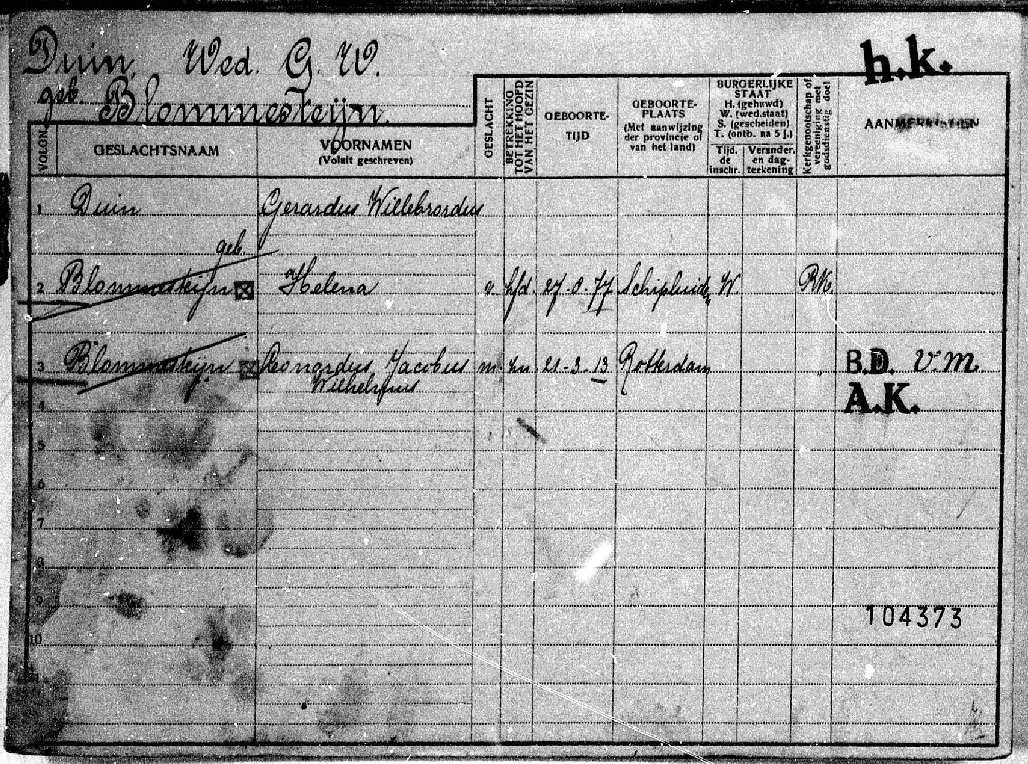 Duin, Wed. G. W.
geb. Blommesteijn.
h.k.
VOLGN.
GESLACHTSNAAM
VOORNAMEN
(Voluit geschreven)
GESLACHT
BETREKKING
TOT HET HOOFD
VAN HET GEZIN
GEBOORTE-
TIJD
GEBOORTE-
PLAATS
(Met aanwijzing
der provincie of
van het land)
BURGERLIJKE
STAAT
H. (gehuwd)
W. (wed.staat)
S. (gescheiden)
T. (ontb. na 5 j.)
Tijd.
de
inschr.
Verander.
en dag-
teekening
Kerkgenootschap of
vereeniging met
godsdienstig doel
AANMERKINGEN
1 Duin Gerardus Willebrordus
geb.
2 Blommesteijn Helena v hfd. 27-8-77 Schipluiden W RK
3 Blommesteijn Leonardus Jacobus m zn 21-3-13 Rotterdam " B.D. v.m.
Wilhelmus
A.K.
4
5
6
7
8
9
104373
10
11